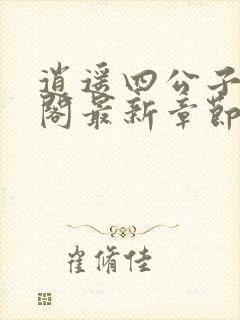 逍遥四公子
阁最新章節
崔脩佳